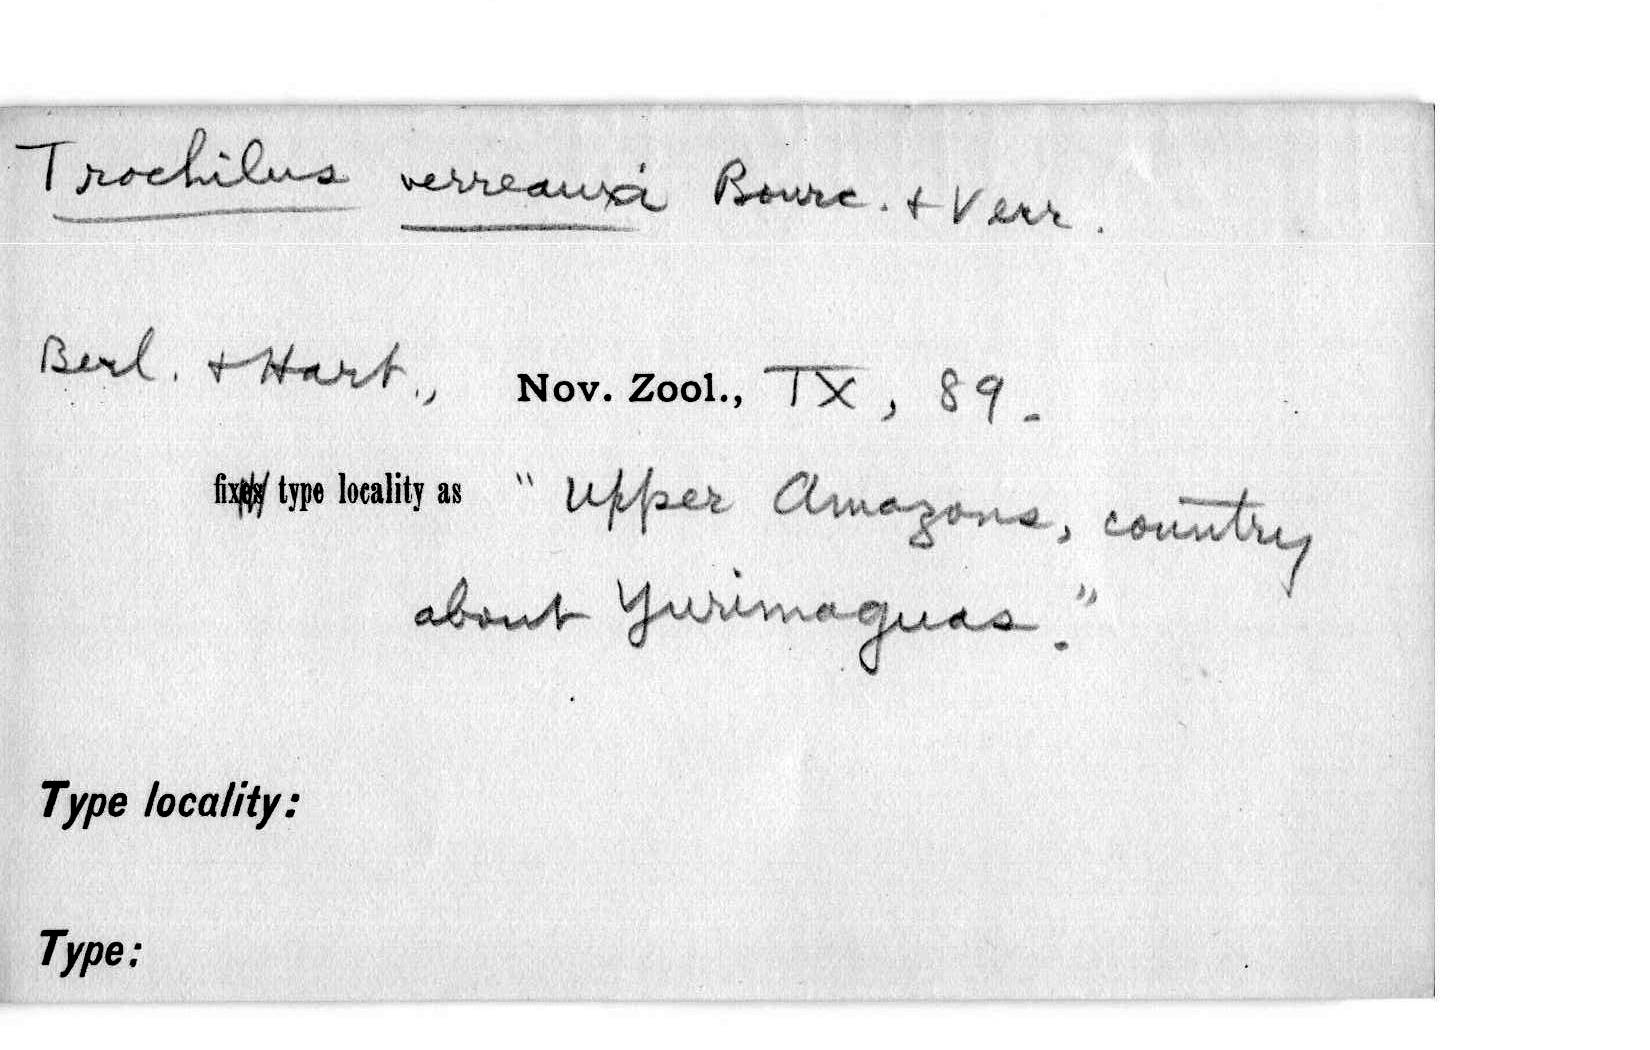 Trochilus verreauxi Bourc. + Verr.
Berl. + Hart., Nov. Zool., IX, 89.
fix type locality as "Upper Amazons, country
about Yurimaguas."
Type locality:
Type: